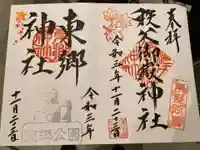 奉拝
秩父御嶽神社
令和三年十一月二十三日
東郷神社
令和三年
十一月二十三日
東郷公園